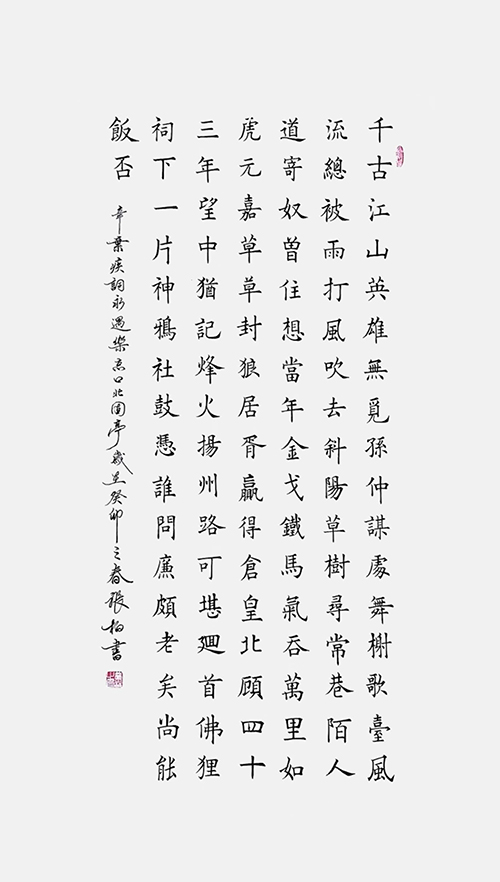 千古江山英雄無覓孫仲謀處舞榭歌臺風
流總被雨打風吹去斜陽草樹尋常巷陌人
道寄奴曾住想當年金戈鐵馬氣吞萬里如
虎元嘉草草封狼居胥贏得倉皇北顧四十
三年望中猶記烽火揚州路可堪廻首佛狸
祠下一片神鴉社鼓憑誰問廉頗老矣尚能
飯否
辛棄疾詞永遇樂京口北固亭歲在癸卯之春張柏書